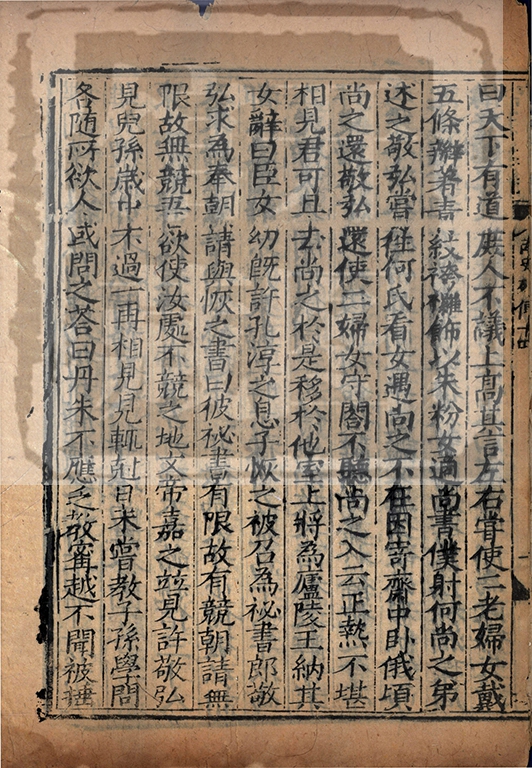 曰天下有道庶人不議上高其言左右嘗使二老婦女戴
五條辮著青紋袴襦飾以朱粉女適尚書僕射何尚之弟
述之敬弘嘗往何氏看女遇尚之不在因寄齋中卧俄頃
尚之還敬弘還使二婦女守閣不聽尚之入云正熱不堪
相見君可且去尚之於是移於他室上將為廬陵王納其
女辭曰臣女幼既許孔淳之息子恢之被召為祕書郎敬
弘求為奉朝請與恢之書曰彼祕書有限故有競朝請無
限故無競吾欲使汝處不競之地文帝嘉之並見許敬弘
見兒孫歲中不過一再相見見輒尅日未嘗教子孫學問
各隨所欲人或問之荅曰丹朱不應乏教甯越不聞被捶